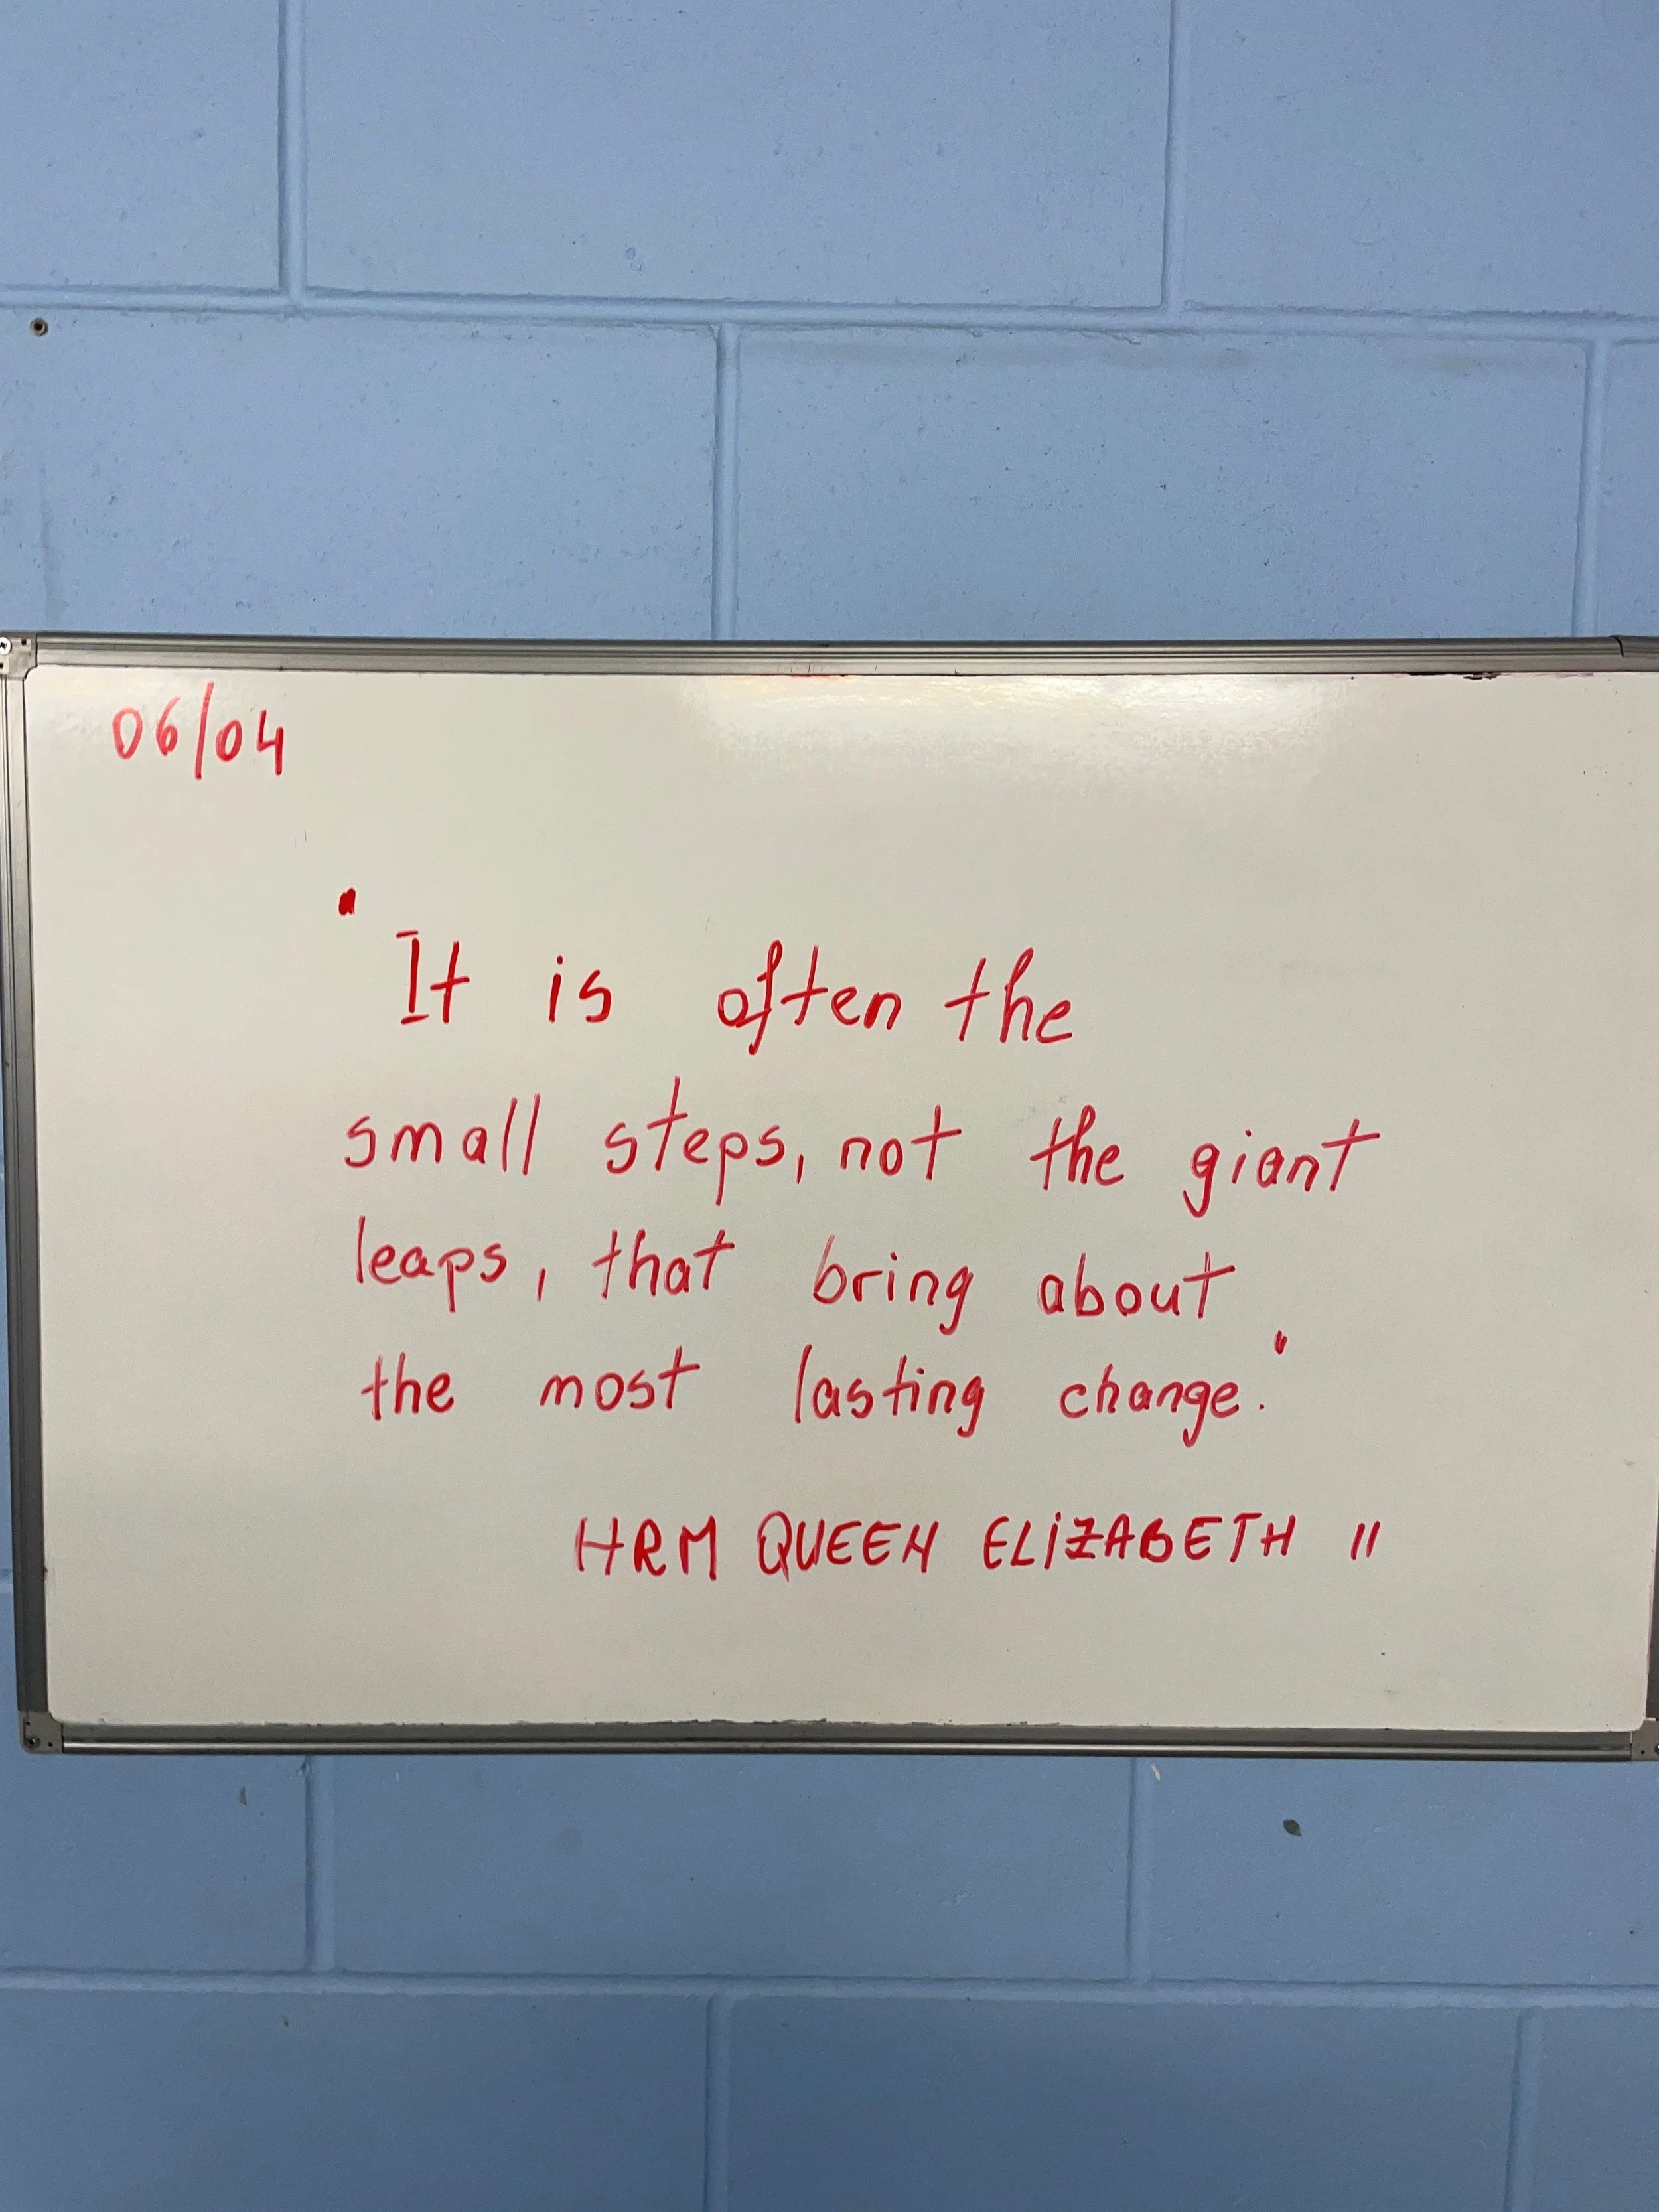 06/04
"It is often the
small steps, not the giant
leaps, that bring about
the most lasting change."
HRM QUEEN ELIZABETH II